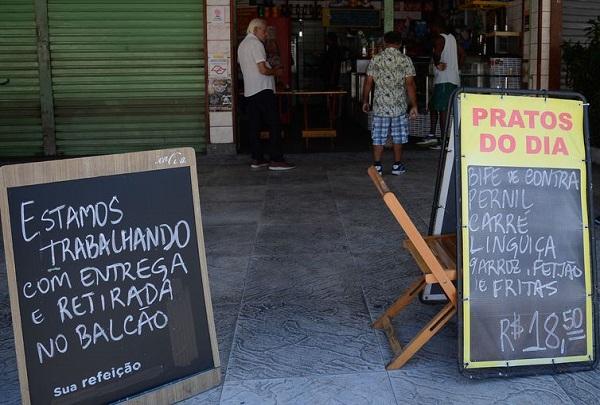 Estamos
trabalhando
com entrega
e retirada
no balcão
Sua refeição
PRATOS
DO DIA
BIFE DE CONTRA
PERNIL
CARRÉ
LINGUIÇA
ARROZ, FEIJÃO
E FRITAS
R$ 18,50